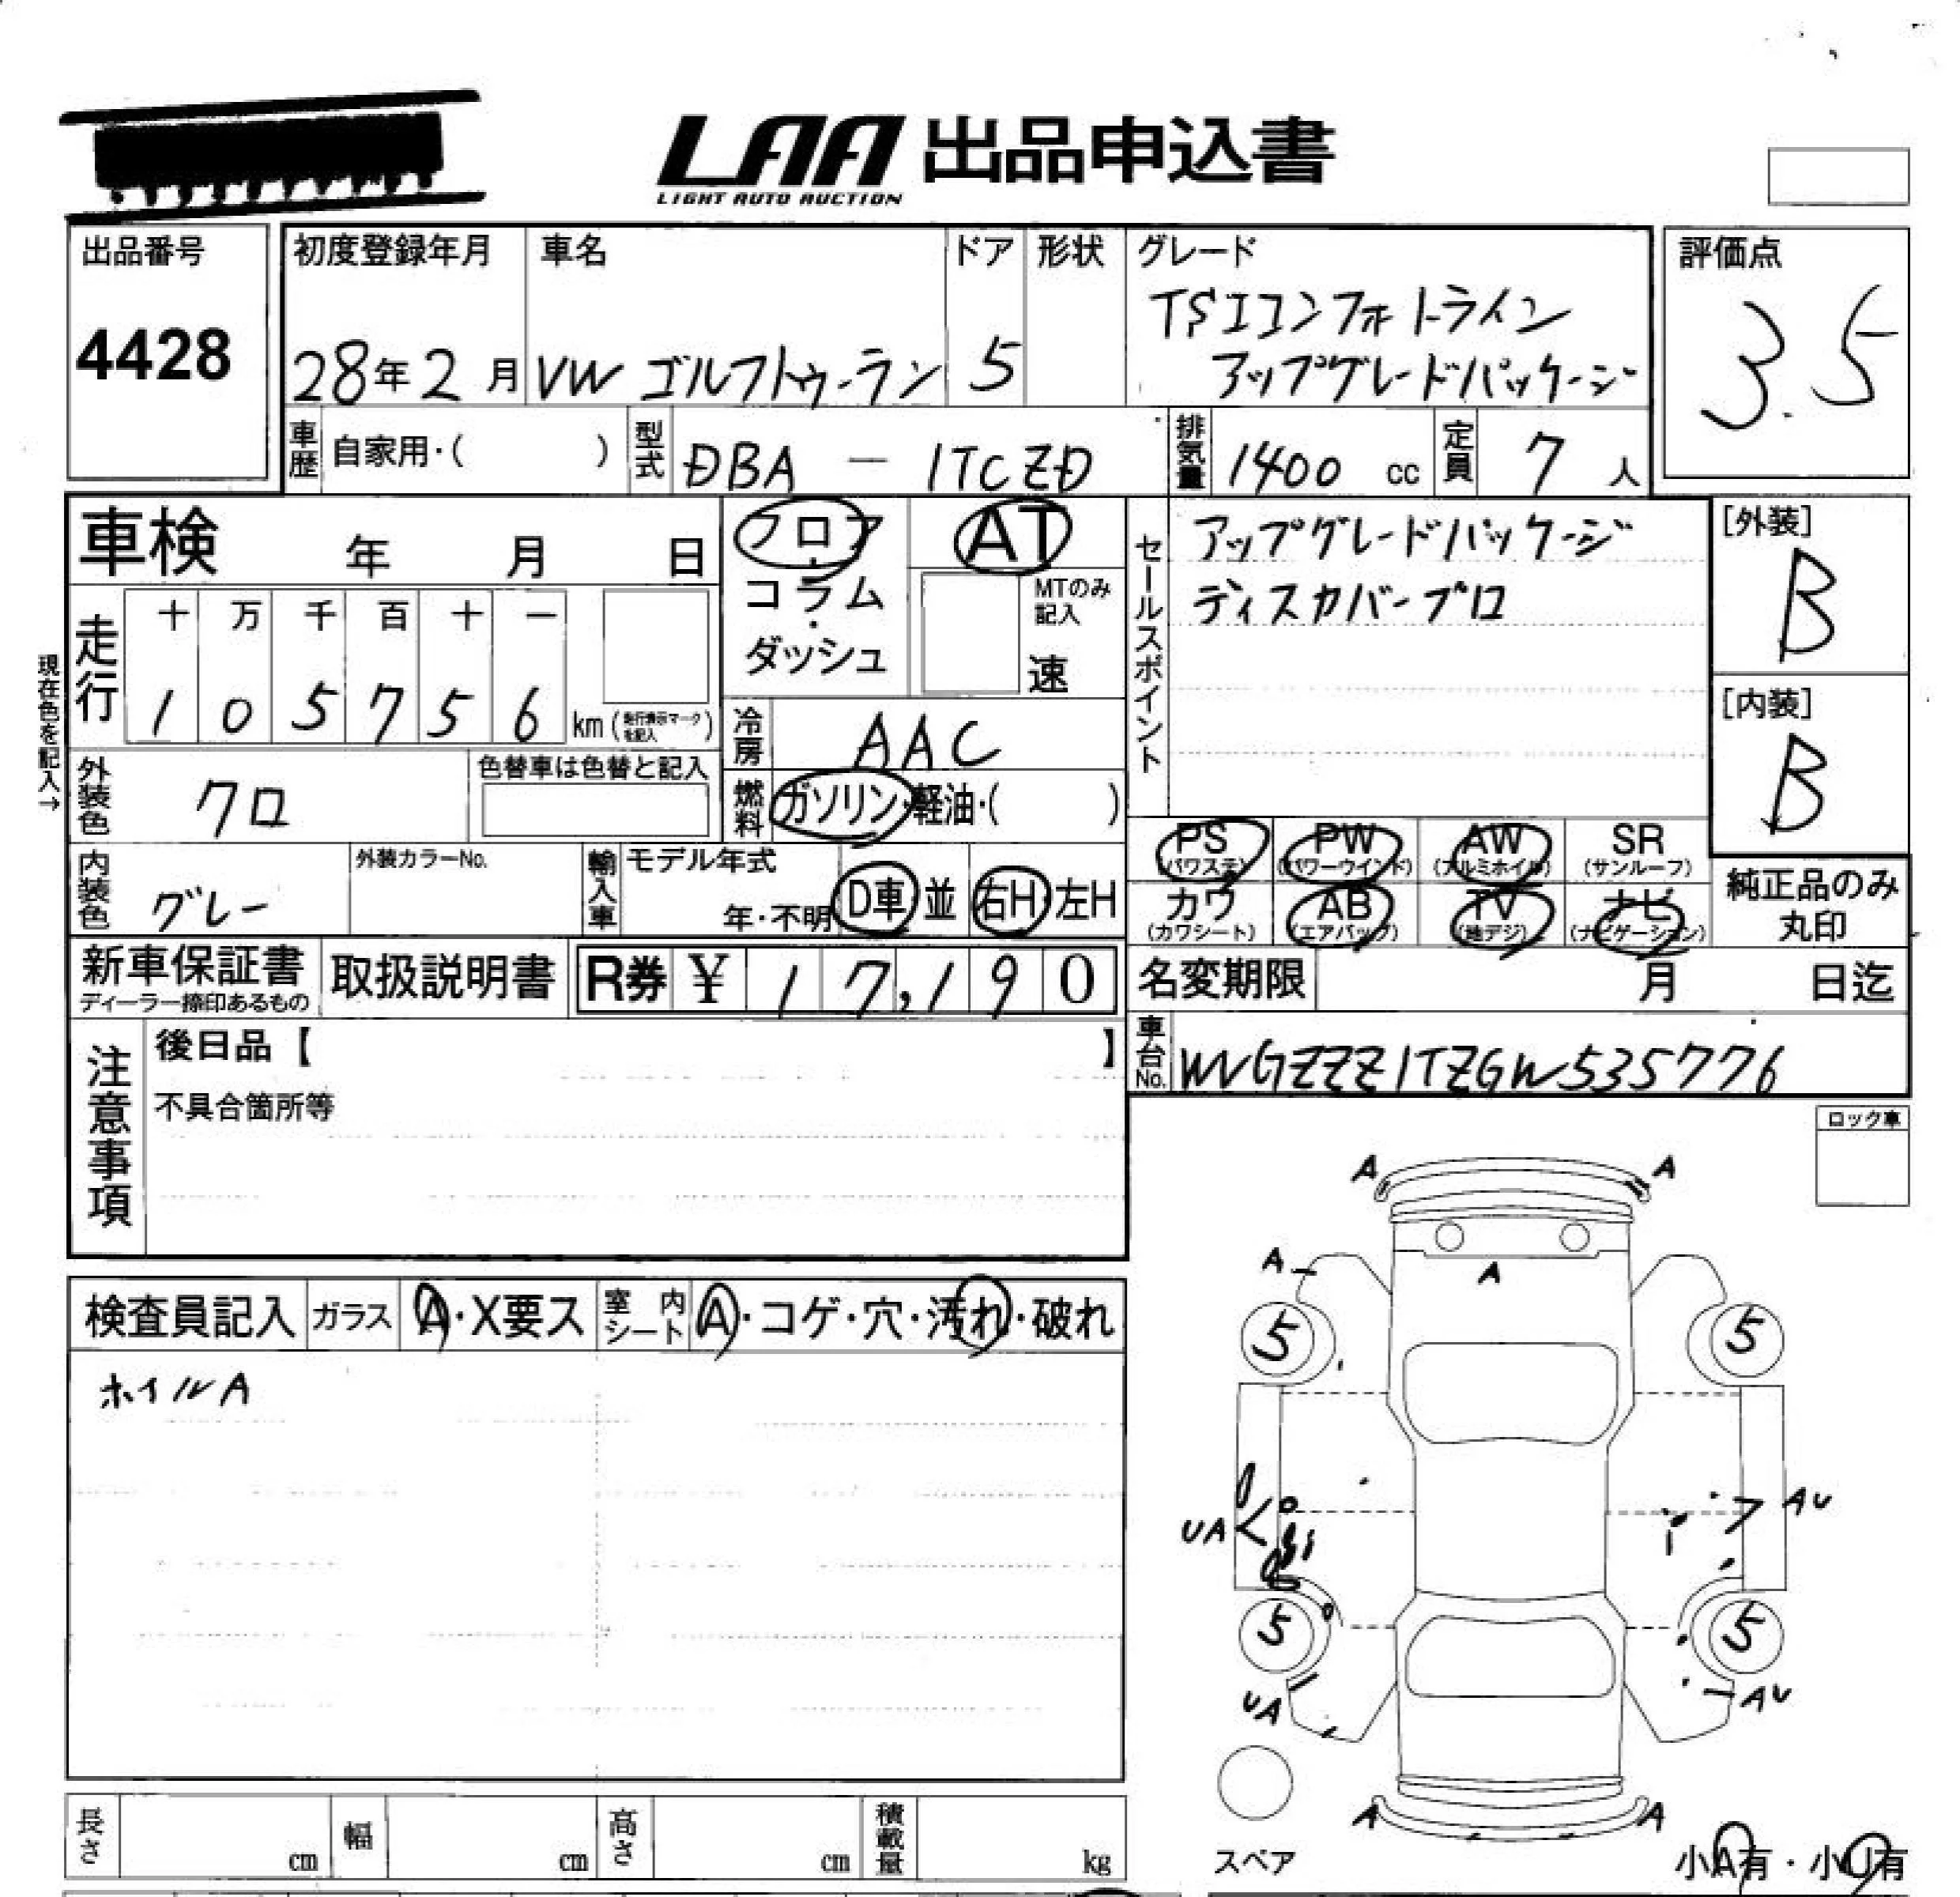 LAA 出品申込書
LIGHT AUTO AUCTION
出品番号
4428
初度登録年月
28年2月
車名
VW ゴルフトゥーラン
ドア
5
形状
グレード
TSIコンフォートライン
アップグレードパッケージ
評価点
3.5
車歴 自家用・( )
型式 DBA - 1TCZD
排気量 1400 cc
定員 7 人
車検 年 月 日
フロア・コラム・ダッシュ
AT
MTのみ記入
速
現在色を記入→
走行
十 万 千 百 十 一
1 0 5 7 5 6 km (走行表示マークを記入)
冷房 AAC
外装色 クロ
色替車は色替と記入
燃料 ガソリン・軽油・( )
内装色 グレー
外装カラーNo.
輸入車 モデル年式
年・不明 D車 並 右H 左H
セールスポイント
アップグレードパッケージ
ディスカバープロ
[外装]
B
[内装]
B
PS (パワステ) PW (パワーウインド) AW (アルミホイル) SR (サンルーフ)
カワ (カワシート) AB (エアバック) TV (地デジ) ナビ (ナビゲーション)
純正品のみ丸印
新車保証書
ディーラー捺印あるもの
取扱説明書
R券 ¥ 17,190
名変期限 月 日迄
車台No. WVGZZZ1TZGW535776
注意事項
後日品【 】
不具合箇所等
ロック車
検査員記入 ガラス A・X要ス 室内シート A・コゲ・穴・汚れ・破れ
ホイルA
A A
A
A
5 5
UA AU
5 5
UA AU
A A
スペア
小A有・小U有
長さ cm 幅 cm 高さ cm 積載量 kg